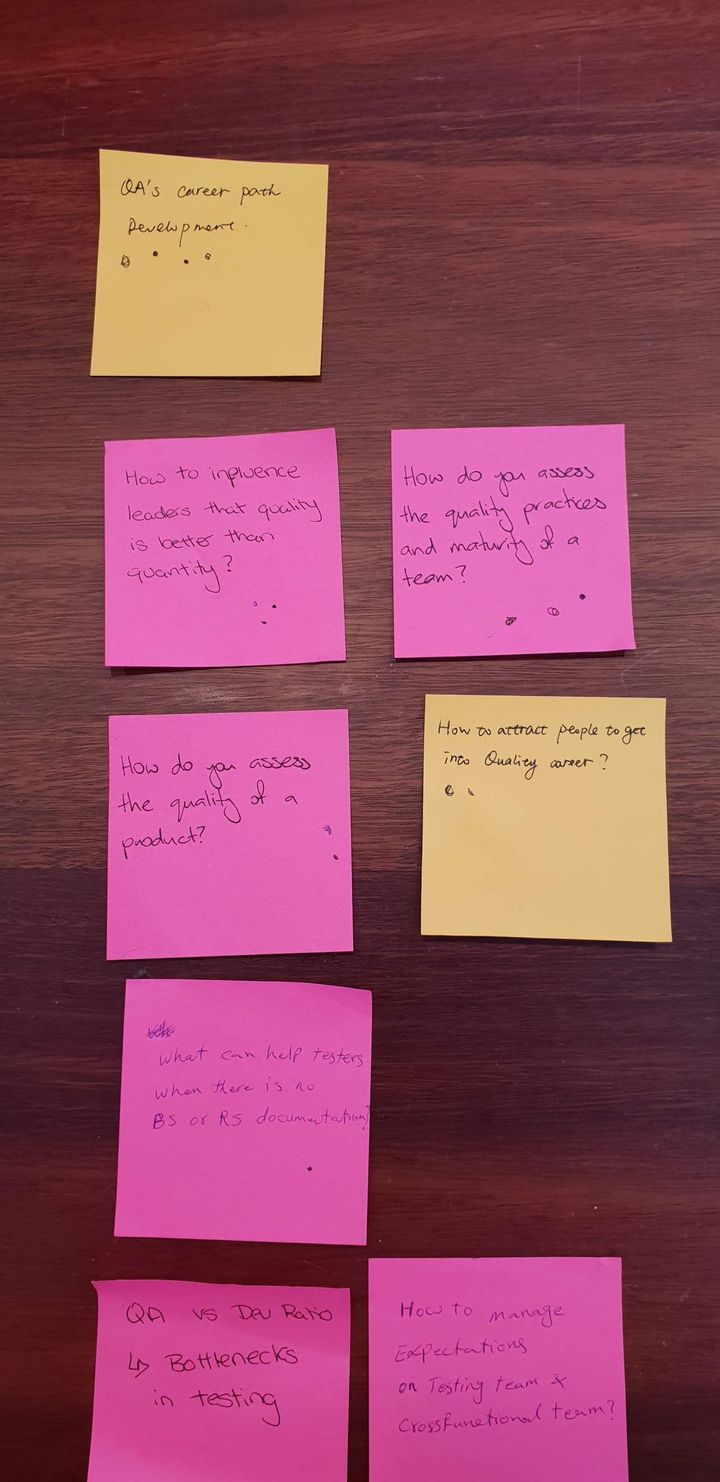 QA's career path
Development.
How to influence
leaders that quality
is better than
quantity?
How do you assess
the quality practices
and maturity of a
team?
How do you assess
the quality of a
product?
How to attract people to get
into Quality career?
What can help testers
when there is no
BS or RS documentation?
QA vs Dev Ratio
↳ Bottlenecks
in testing
How to manage
Expectations
on Testing team &
CrossFunctional team?